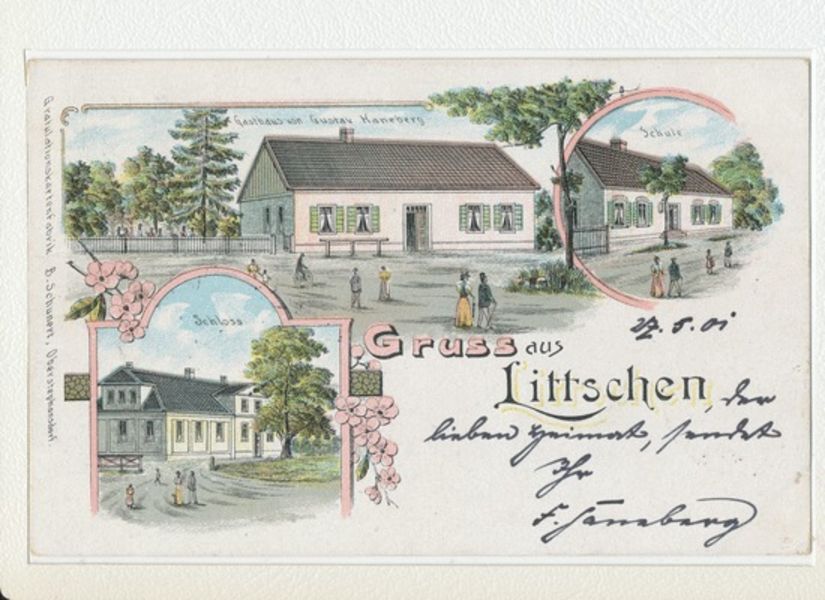 Gasthaus von Gustav Haneberg
Schule
Schloss
27.5.01
Gruss aus
Littschen, der
lieben Heimat, sendet
Ihr
F. Häneberg
Gratulationskartenfabrik B. Schunert, Oberstephansdorf.